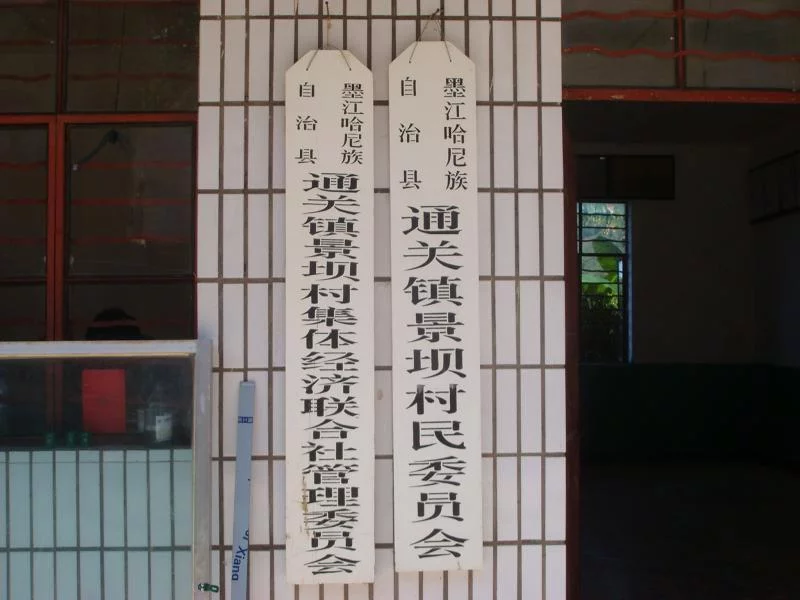 墨江哈尼族
自治县
通关镇景坝村集体经济联合社管理委员会
墨江哈尼族
自治县
通关镇景坝村民委员会
Xiang